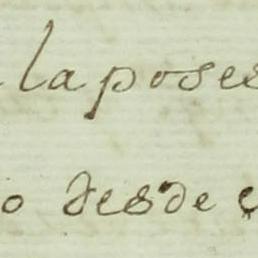 la poses
o desde